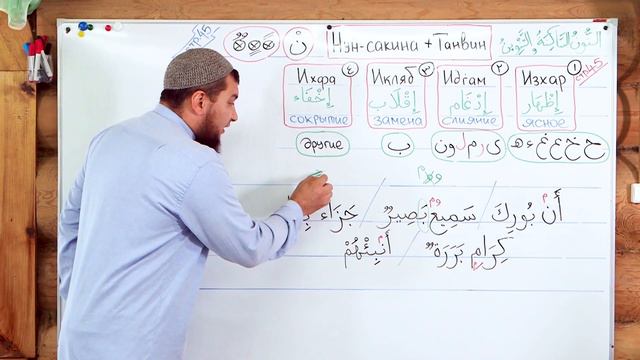 стр.45
نْ
Нун-сакина + Танвин
النُّونُ السَّاكِنَةُ وَالتَّنْوِينُ
стр.45
١ Изхар
إِظْهَار
ясное
٢ Идгам
إِدْغَام
слияние
٣ Икляб
إِقْلَاب
замена
٤ Ихфа
إِخْفَاء
сокрытие
ء ه ع غ ح خ
ي ر م ل و ن
ب
другие
أَن بُورِكَ / سَمِيعٌ بَصِيرٌ / جَزَاءً
كِرَامٍ بَرَرَةٍ / أَنبِئْهُمْ